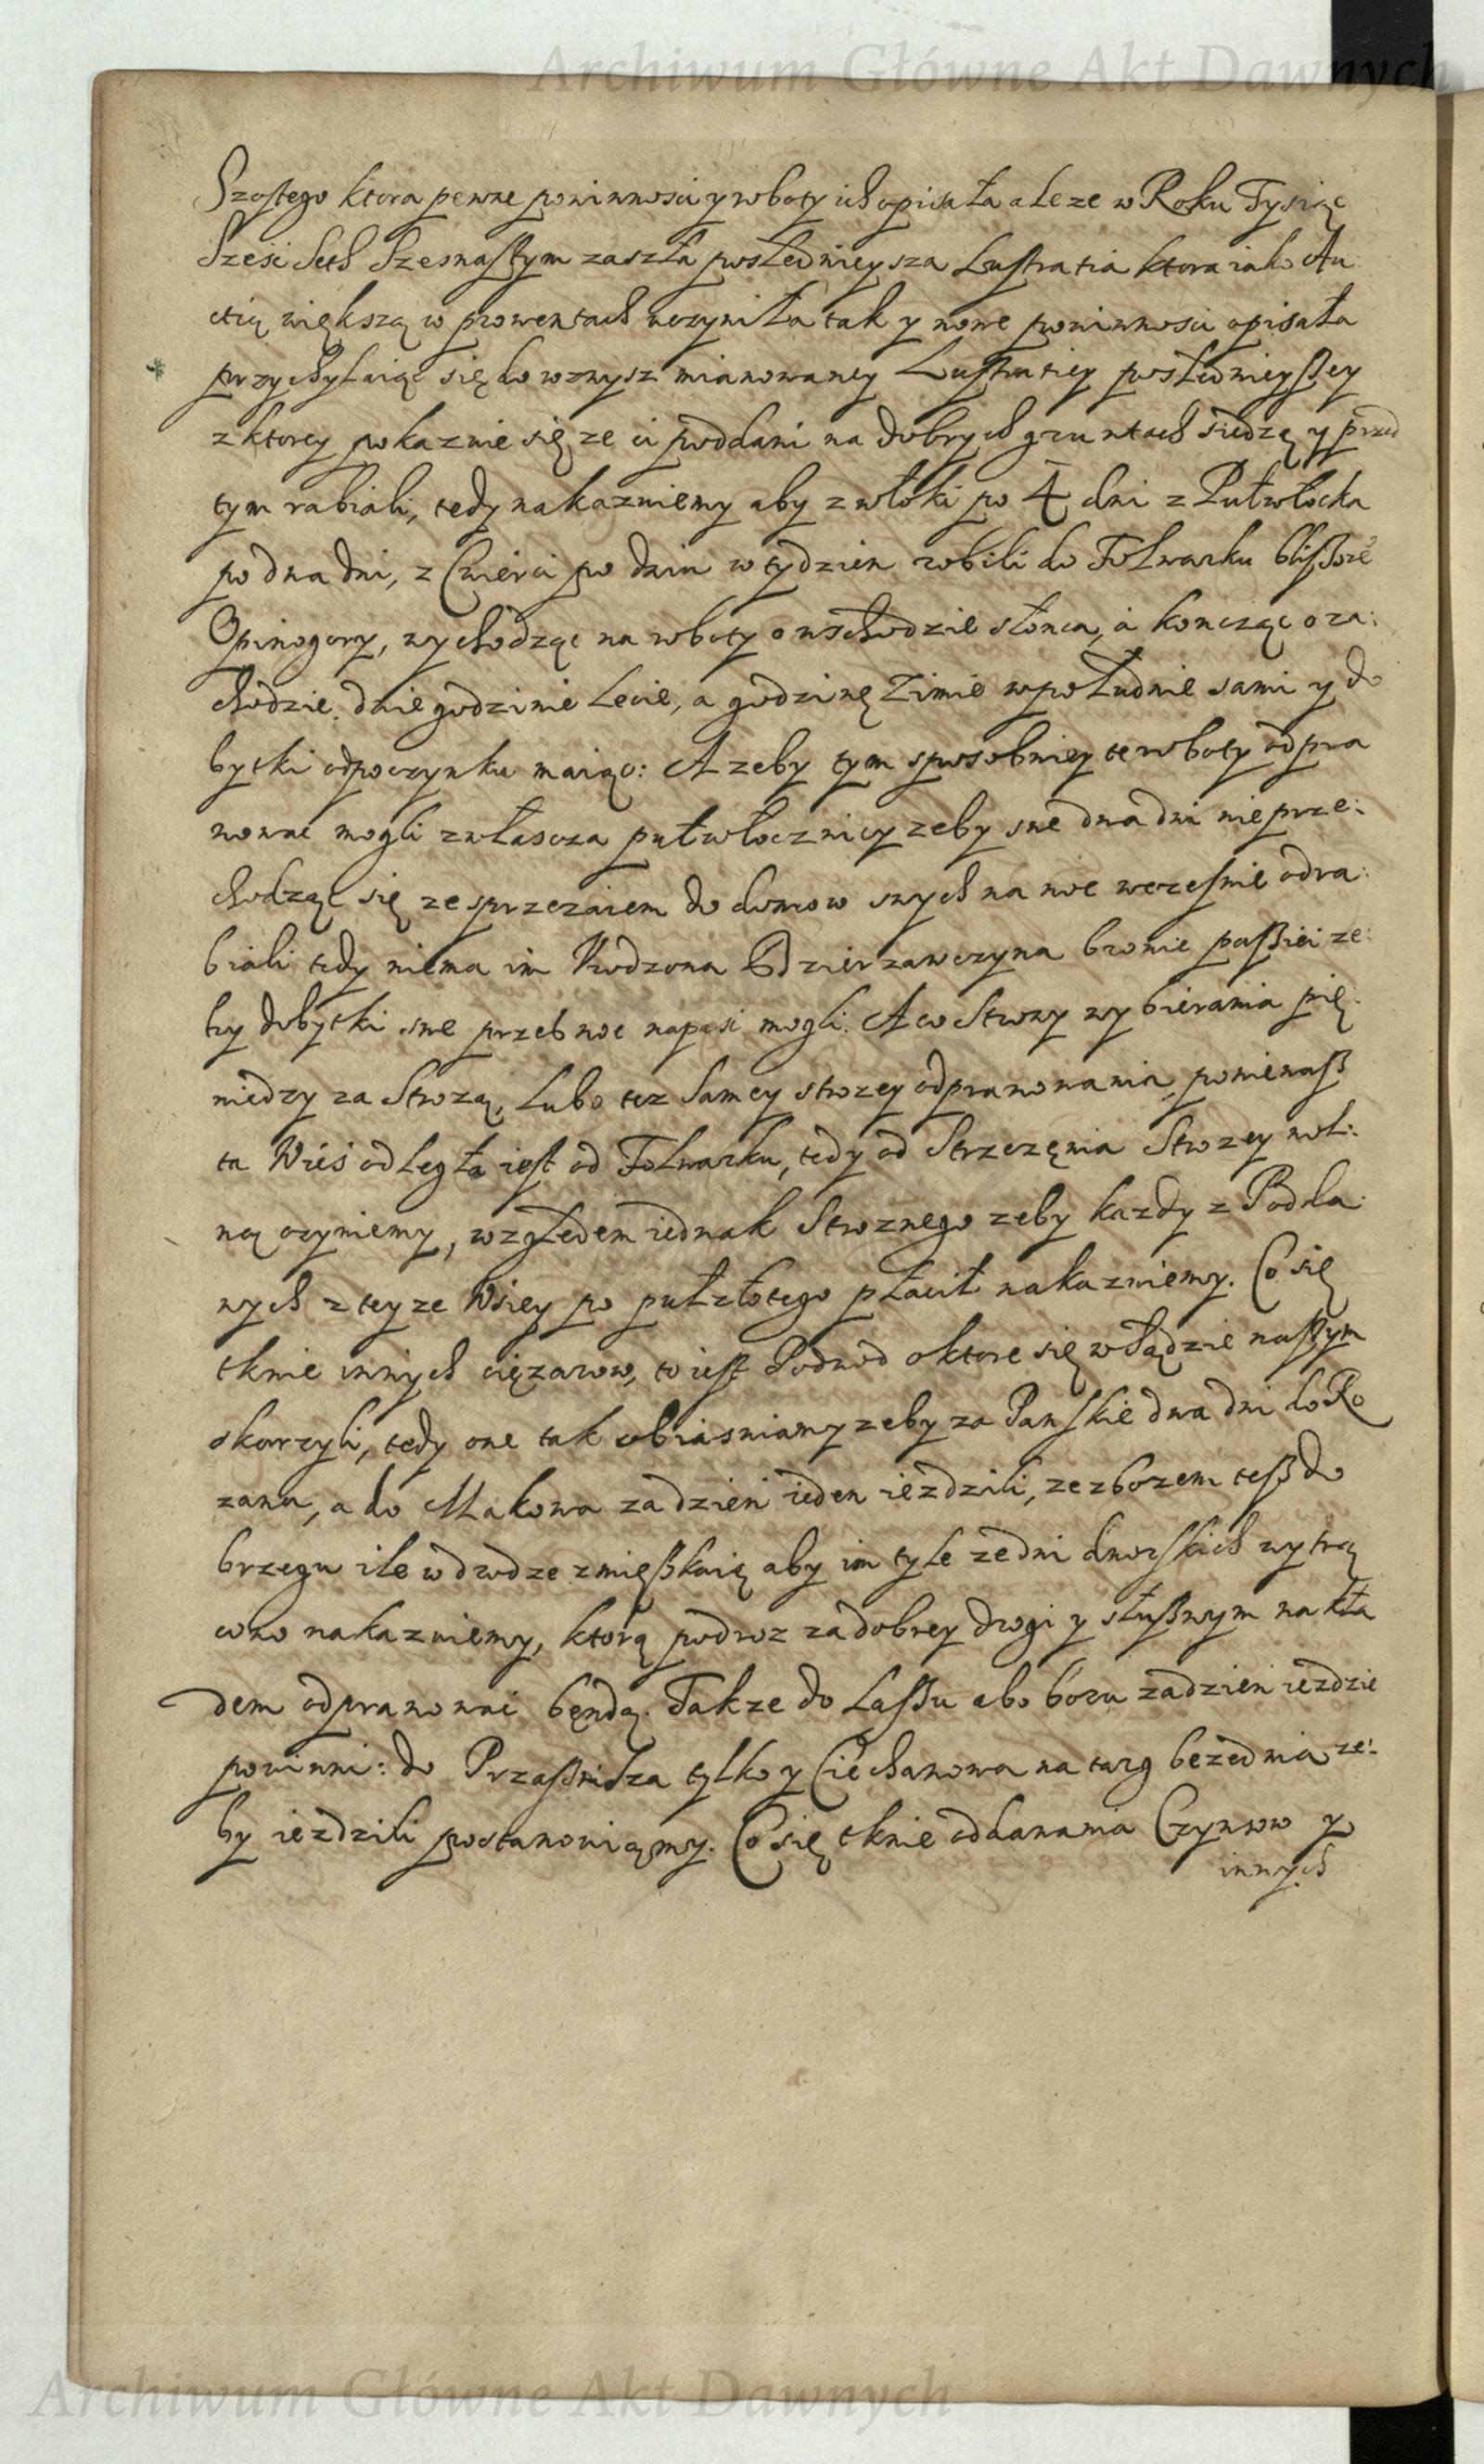 Archiwum Główne Akt Dawnych
Szostego ktora pewne powinnosci y roboty ich opisała a Leze w Roku Tysiąc
Sześc Seth Szesnastym zaszła poslednieysza Lustratia ktora iako Au
ctią większą w prowentach uczyniła tak y nowe powinnosci opisała
przychylaiąc się do wzwysz mianowaney Lustratiey posledniejszey
z ktorey pokazuie się ze ci poddani na dobrych gruntach siedzą y przed
tym rabiali, tedy nakazuiemy aby z włoki po 4 dni z Pułwłocka
po dwa dni, z Cwierci po dniu w tydzien robili do Folwarku blissze
Opinogory, wychodząc na roboty o wschodzie słonca, a koncząc o za:
chodzie. dwie godzinie Lecie, a godzinę Zimie w południe sami y do
bytki odpoczynku maiąc: A zeby tym sposobniey te roboty odpra
wowac mogli zwłascza pułwłocznicy zeby swe dwa dni nie prze:
chodząc się ze sprzezaiem do domow swych na noc wczesnie odra:
biali tedy niema im Urodzona Dzierzawczyna bronic passiei ze:
by dobytki swe przeb noc napasi mogli. A co Strony wybierania pię:
niedzy za Strozą, Lubo tez Samey strozey odprawowania, poniewasz
ta Wieś odLegła iest od Folwarku, tedy od Strzezęnia Strozey wol:
ną czyniemy, względem iednak Stroznego zeby kazdy z Podda:
nych z teyze Wsiey po pułzłotego płacił nakazuiemy. Co się
tknie innych cięzarow, to iest Podwod o ktore się w Sądzie naszym
skarzyli, tedy one tak obiasniamy zeby za Panskie dwa dni do Ro
zana, a do Makowa za dzien ieden iezdzili, ze zbozem tesz do
brzegu ile w drodze zmięszkaią aby im tyle ze dni dworskich wytrą
cono nakazuiemy, ktorą podroz za dobrey drogi y słusznym nakła
dem odprawowac będą. Takze do Lassu abo boru za dzien iezdzic
powinni: do Przasnisza tylko y Ciechanowa na targ beze dnia ze:
by iezdzili postanowiamy. Co się tknie oddawania Czynszow y
innych
Archiwum Główne Akt Dawnych